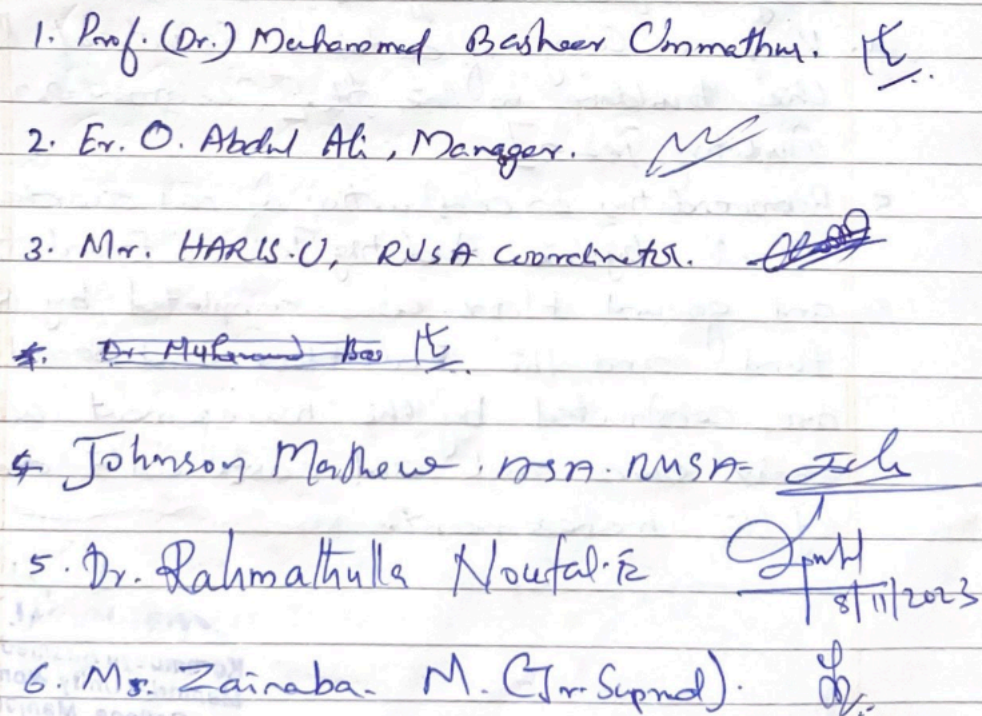 1. Prof. (Dr.) Muhammed Basheer Ummathur.
2. Er. O. Abdul Ali, Manager.
3. Mr. HARIS.U, RUSA Coordinator.
4. Dr Muhammed Bas
4 Johnson Mathew. ASA. RUSA-
5. Dr. Rahmathulla Noufal.E
8/11/2023
6. Ms. Zainaba. M. (Jr. Supnd).